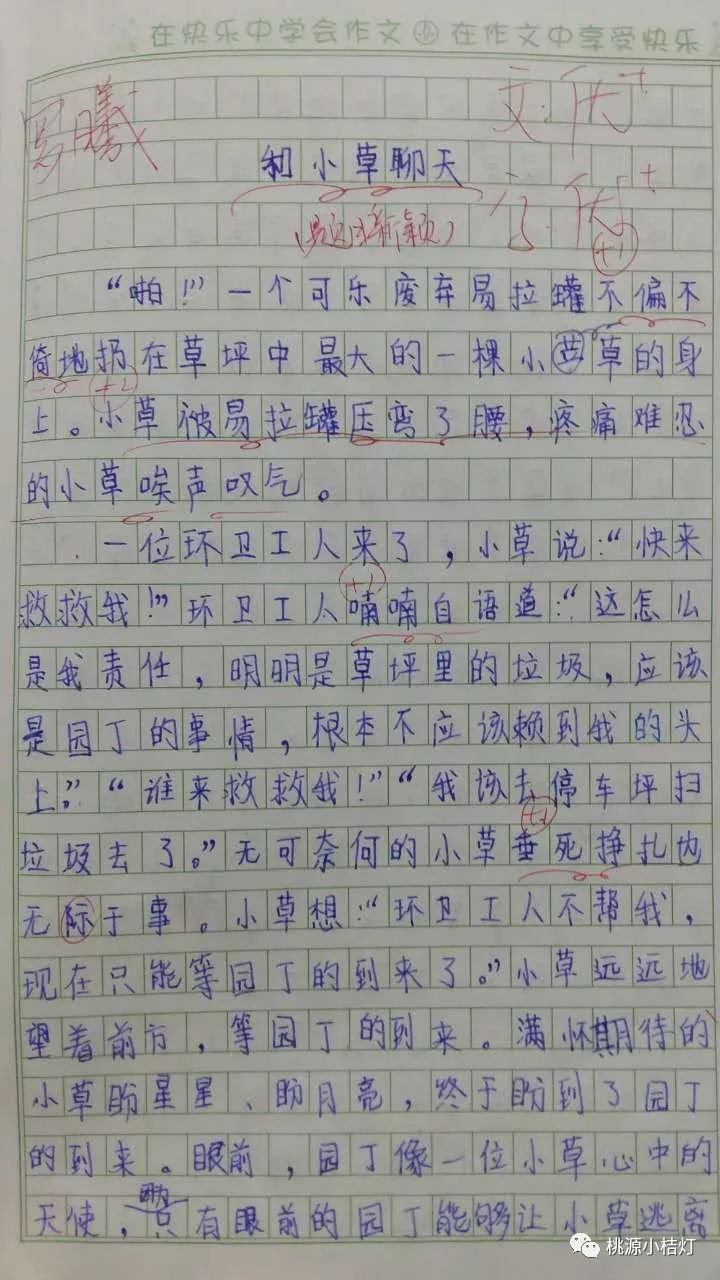 在快乐中学会作文 在作文中享受快乐
文 优+
和小草聊天
优+
+1
“啪！”一个可乐废弃易拉罐不偏不
倚地扔在草坪中最大的一棵小草的身
+2
上。小草被易拉罐压弯了腰，疼痛难忍
的小草唉声叹气。
一位环卫工人来了，小草说：“快来
+1
救救我！”环卫工人喃喃自语道：“这怎么
是我责任，明明是草坪里的垃圾，应该
是园丁的事情，根本不应该赖到我的头
上。”“谁来救救我！”“我该去停车坪扫
+1
垃圾去了。”无可奈何的小草垂死挣扎也
无际于事。小草想：“环卫工人不帮我，
现在只能等园丁的到来了。”小草远远地
望着前方，等园丁的到来。满怀期待的
小草盼星星、盼月亮，终于盼到了园丁
的到来。眼前，园丁像一位小草心中的
天使，只有眼前的园丁能够让小草逃离
桃源小桔灯